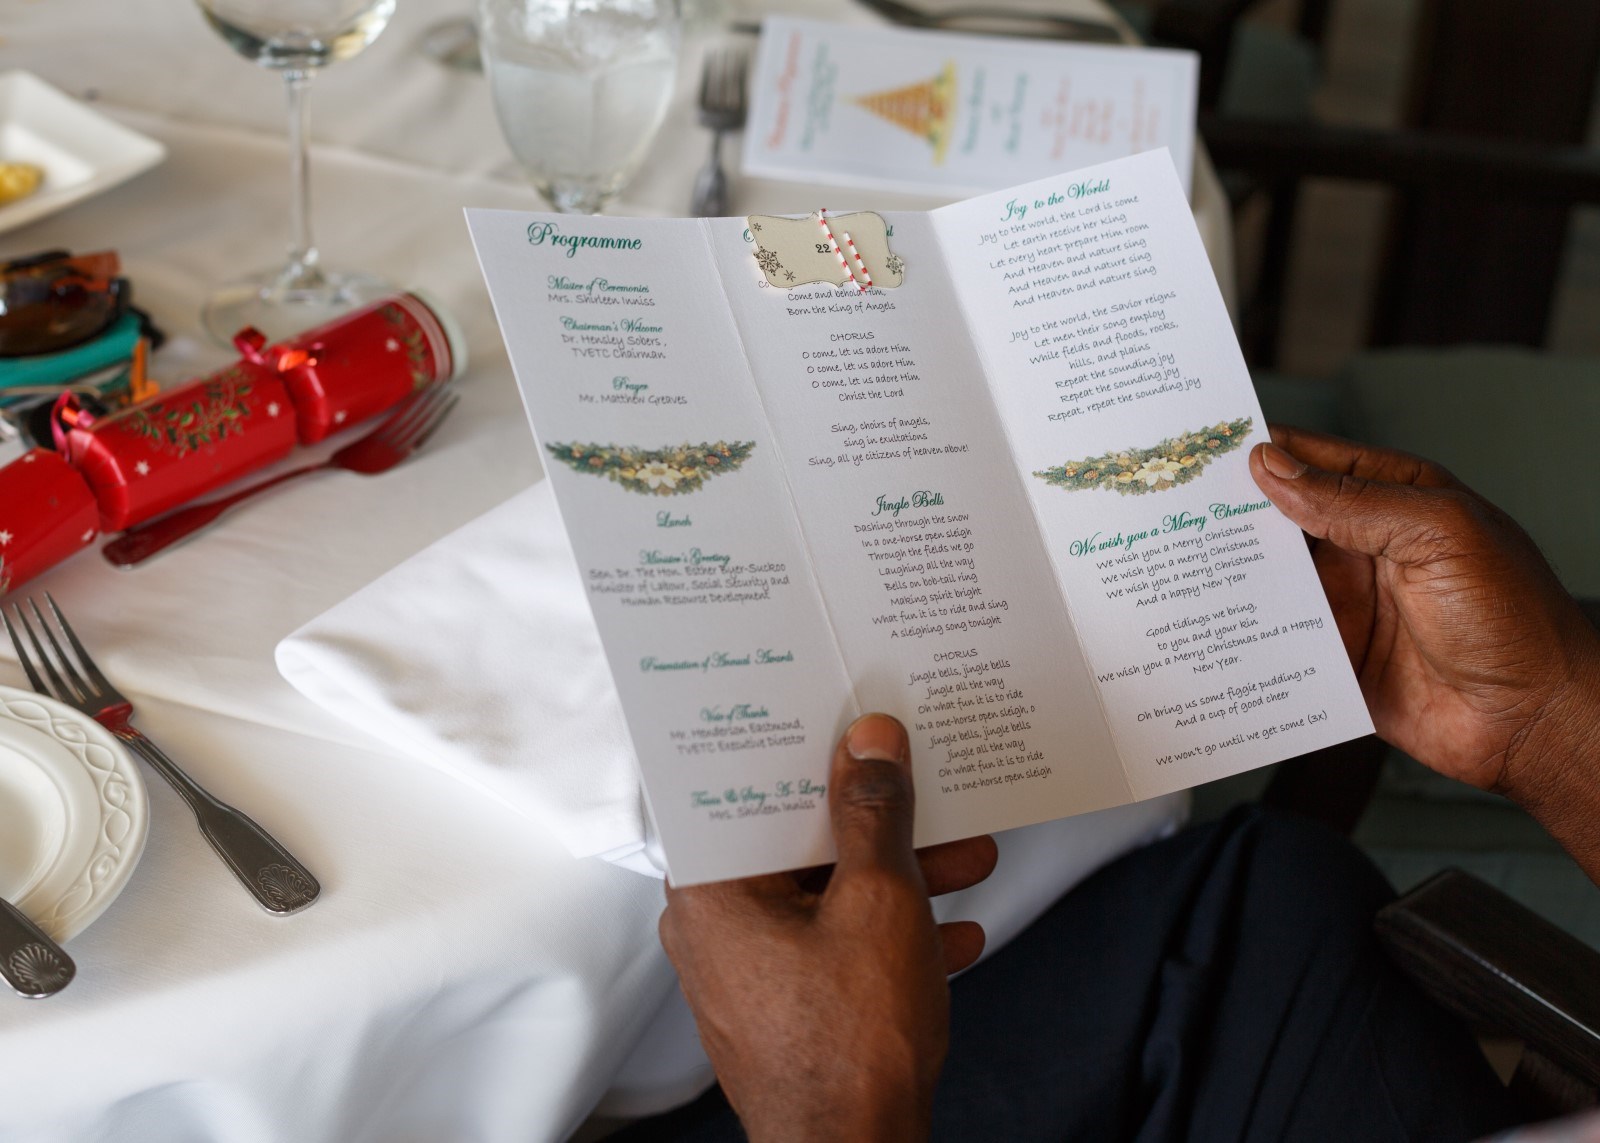 Programme
Master of Ceremonies
Mrs. Shirleen Inniss
Chairman's Welcome
Dr. Hensley Sobers,
TVETC Chairman
Prayer
Mr. Matthew Greaves
Lunch
Minister's Greeting
Sen. Dr. The Hon. Esther Byer-Suckoo
Minister of Labour, Social Security and
Human Resource Development
Presentation of Annual Awards
Vote of Thanks
Mr. Henderson Eastmond,
TVETC Executive Director
Trivia & Sing-A-Long
Mrs. Shirleen Inniss
22
Come and behold Him,
Born the King of Angels
CHORUS
O come, let us adore Him
O come, let us adore Him
O come, let us adore Him
Christ the Lord
Sing, choirs of angels,
sing in exultations
Sing, all ye citizens of heaven above!
Jingle Bells
Dashing through the snow
In a one-horse open sleigh
Through the fields we go
Laughing all the way
Bells on bob-tail ring
Making spirit bright
What fun it is to ride and sing
A sleighing song tonight
CHORUS
Jingle bells, jingle bells
Jingle all the way
Oh what fun it is to ride
In a one-horse open sleigh, o
Jingle bells, jingle bells
Jingle all the way
Oh what fun it is to ride
In a one-horse open sleigh
Joy to the World
Joy to the world, the Lord is come
Let earth receive her King
Let every heart prepare Him room
And Heaven and nature sing
And Heaven and nature sing
And Heaven and nature sing
Joy to the world, the Savior reigns
Let men their song employ
While fields and floods, rocks,
hills, and plains
Repeat the sounding joy
Repeat the sounding joy
Repeat, repeat the sounding joy
We wish you a Merry Christmas
We wish you a Merry Christmas
We wish you a merry Christmas
We wish you a merry Christmas
And a happy New Year
Good tidings we bring,
to you and your kin
We wish you a Merry Christmas and a Happy
New Year.
Oh bring us some figgie pudding x3
And a cup of good cheer
We won't go until we get some (3x)